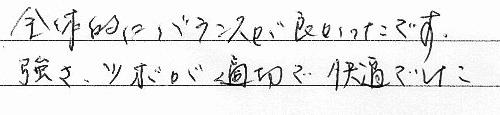 全体的にバランスが良かったです。
強さ、ツボが適切で快適でした